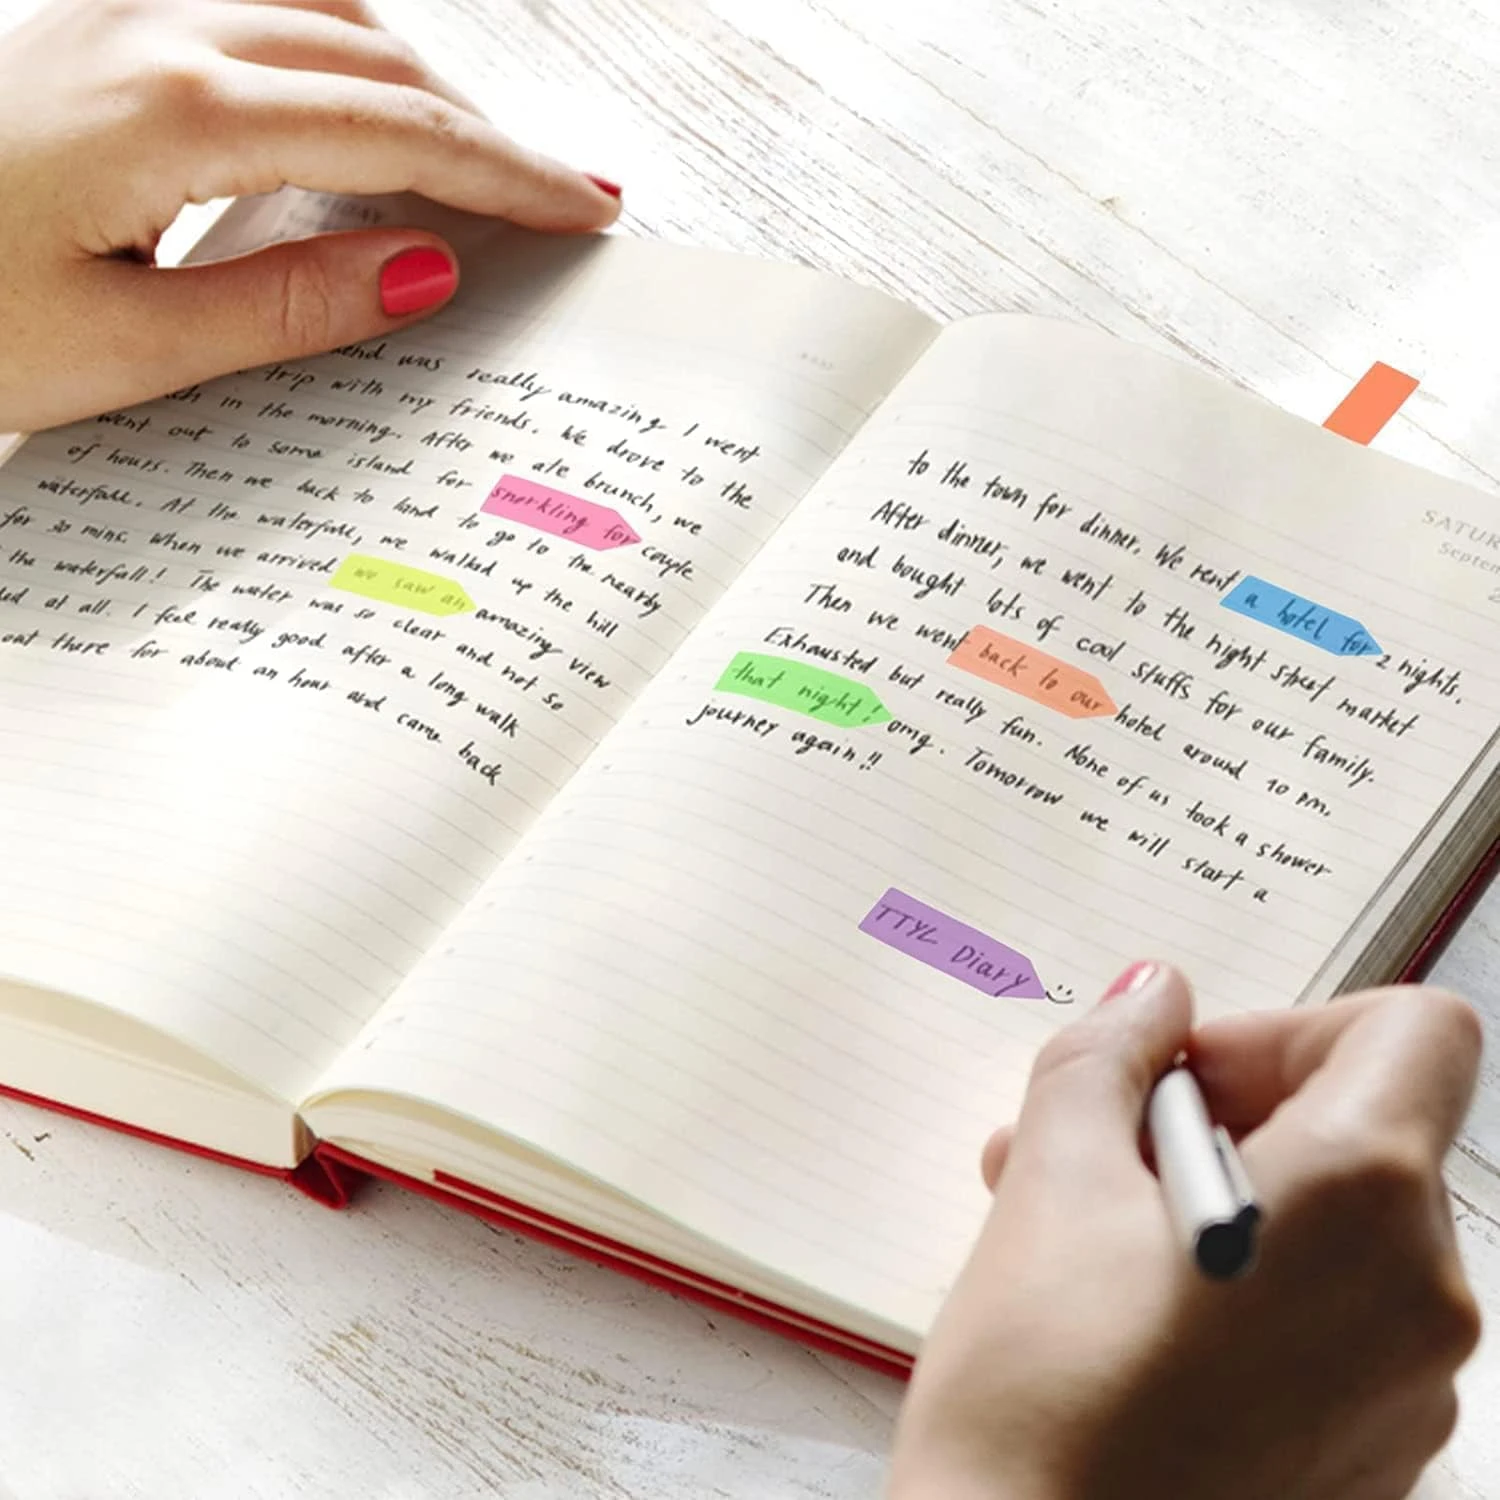 RIDAY
was really amazing. I went
trip with my friends. We drove to the
in the morning. After we ate brunch, we
went out to some island for snorkling for couple
of hours. Then we back to land to go to the nearby
waterfall. At the waterfall, we walked up the hill
for 30 mins. When we arrived we saw an amazing view
the waterfall! The water was so clear and not so
at all. I feel really good after a long walk
out there for about an hour and came back
SATUR
Septem
to the town for dinner. We rent a hotel for 2 nights.
After dinner, we went to the night street market
and bought lots of cool stuffs for our family.
Then we went back to our hotel around 10 pm.
Exhausted but really fun. None of us took a shower
that night! omg. Tomorrow we will start a
journey again!!
TTYL Diary